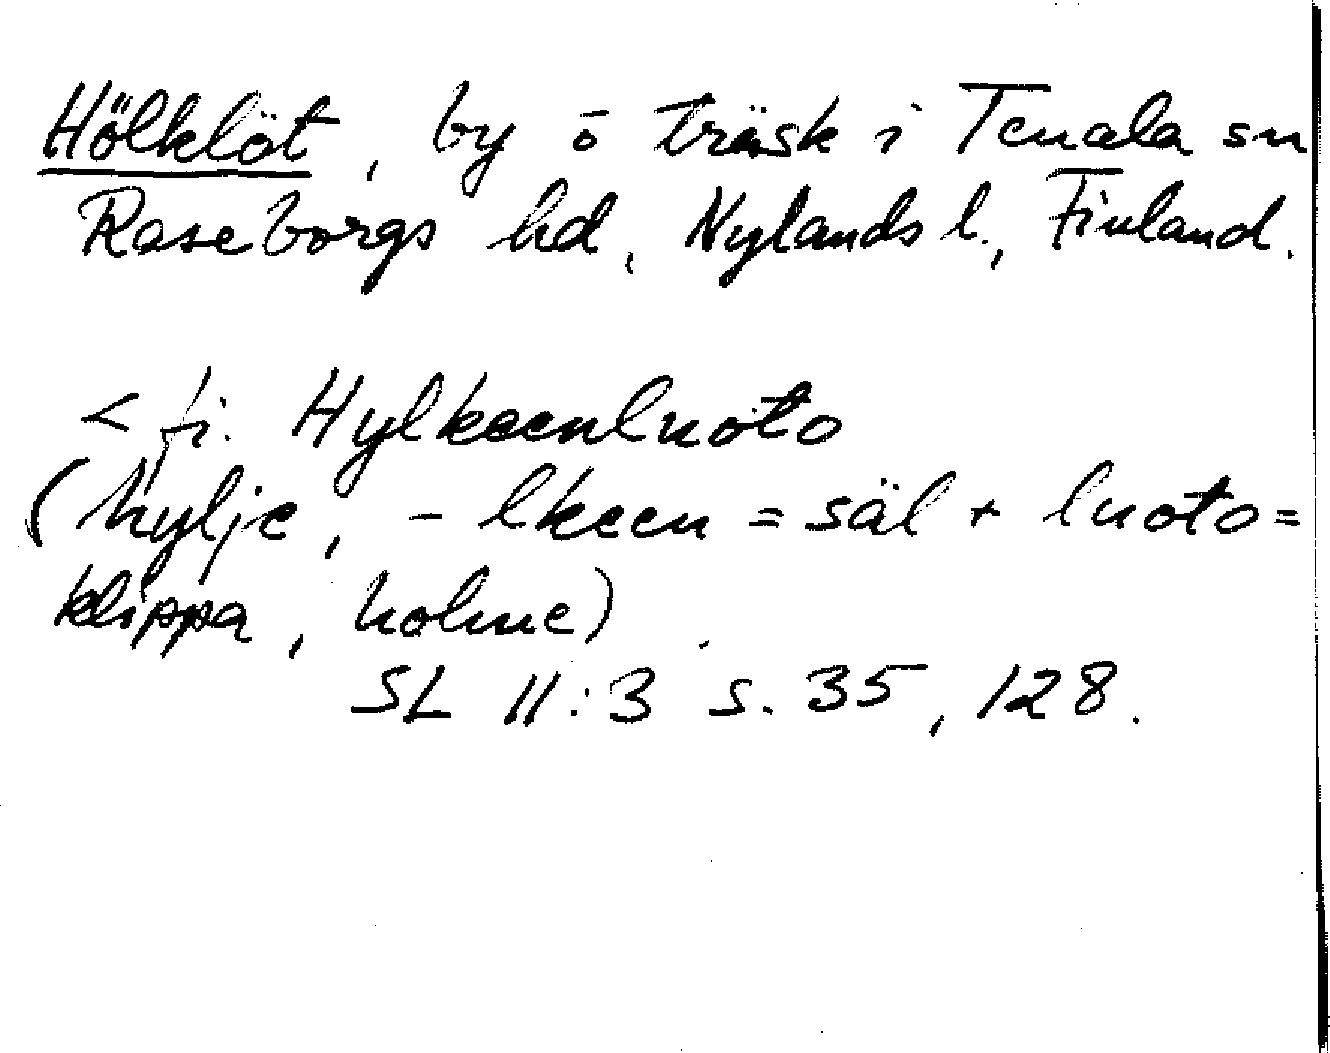 Hölklöt, by o träsk i Tenala sn
Raseborgs hd, Nylands l., Finland.
< fi. Hylkeenluoto
(hylje, -lkeen = säl + luoto =
klippa, holme)
SL II:3 s. 35, 128.